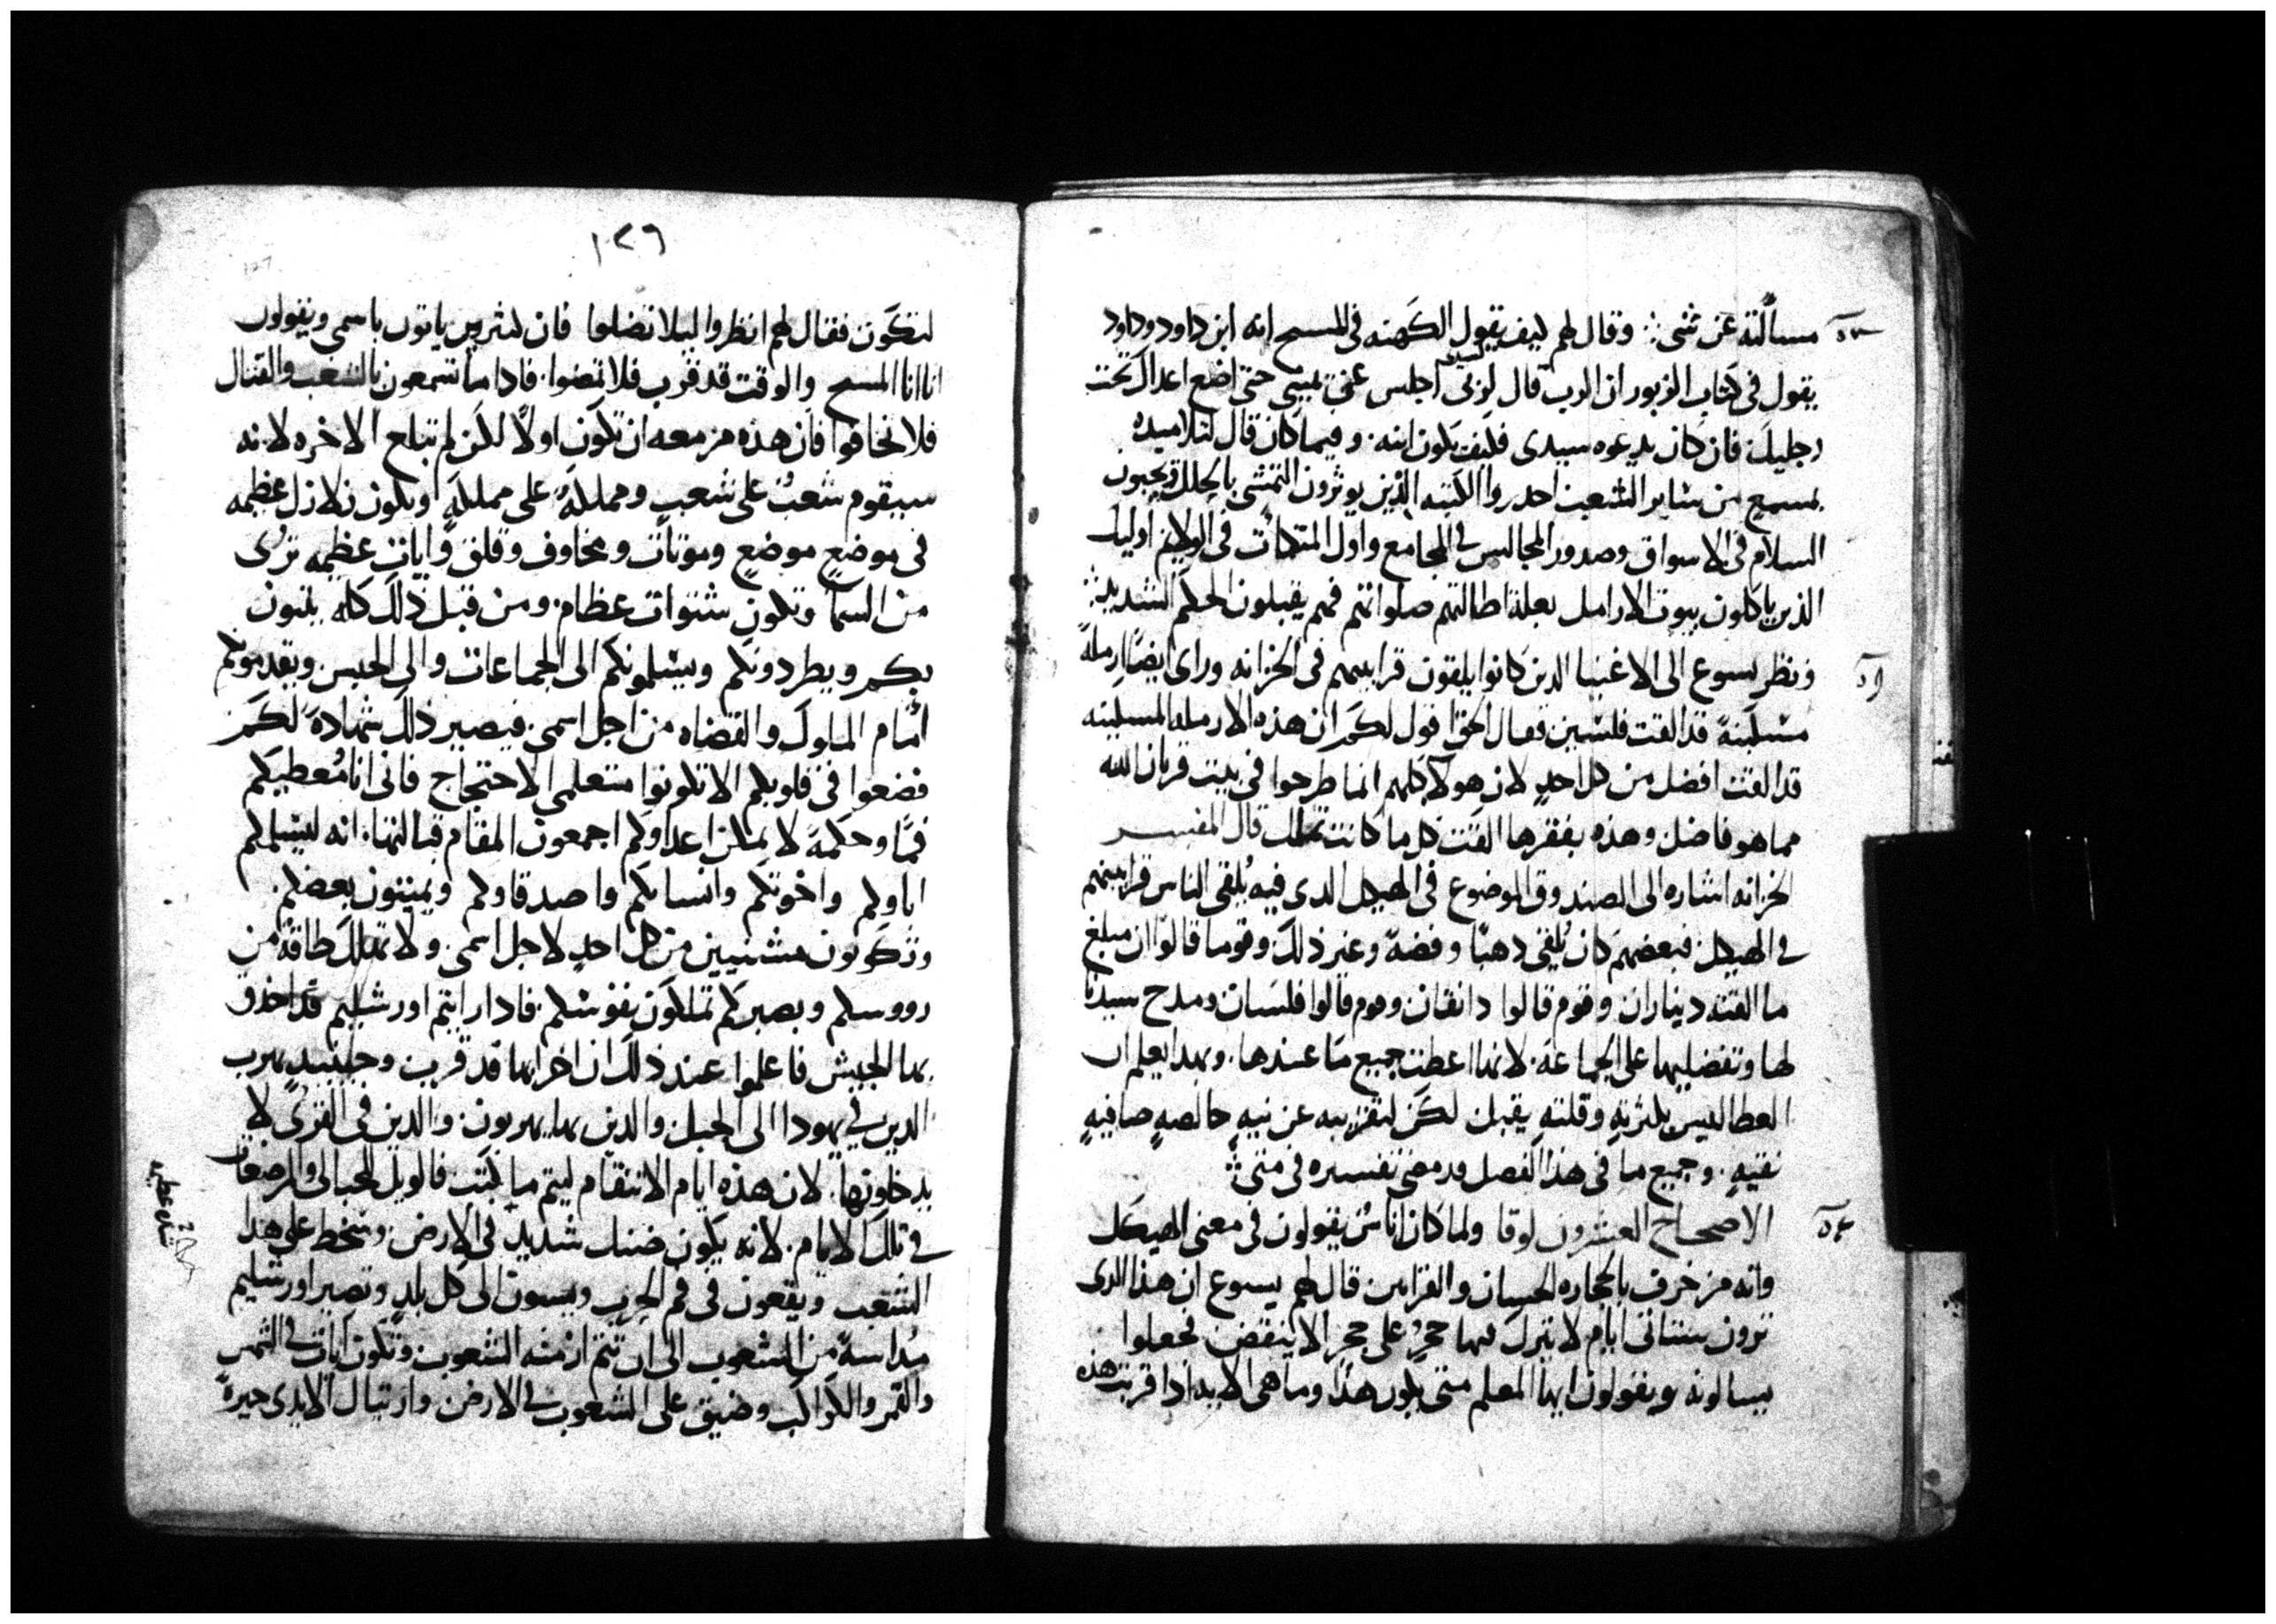 مسألته عن شى وقال لهم كيف يقول الكهنه فى المسيح انه ابن داود وداود
يقول فى كتاب الزبور ان الرب قال لربى اجلس عن يمينى حتى اضع اعداك تحت
رجليك فان كان يدعوه سيدى فكيف يكون ابنه. وفيما كان قال لتلاميده
بمسمع من ساير الشعب احدروا الكتبه الذين يوثرون التمشى بالحلل ويحبون
السلام فى الاسواق وصدور المجالس فى المجامع واول المتكات فى الولايم اوليك
الذين ياكلون بيوت الارامل بعلة اطالتهم صلواتهم فهم يقبلون الحكم الشديد
ونظر يسوع الى الاغنيا الدين كانوا يلقون قرابينهم فى الخزانه وراى ايضا ارملة
مسكينة قد القت فلسين فقال الحق اقول لكم ان هذه الارمله المسكينه
قد القت افضل من كل احد لان هولا كلهم انما طرحوا فى بيت قربان الله
مما هو فاضل وهذه بفقرها القت كل ما كانت تملك قال المفسر
الخزانه اشاره الى الصندوق الموضوع فى الهيكل الدى فيه يلقى الناس قرابينهم
فى الهيكل فبعضهم كان يلقى دهبا وفضة وغير ذلك وقوما قالوا ان مبلغ
ما القته ديناران وقوم قالوا دانقان وقوم قالوا فلسان ومدح سيدنا
لها وتفضيلها على الجماعة. لانها اعطت جميع ما عندها. وبهدا يعلم ان
العطا ليس بكثرته وقلته يقبل لكن لتقريبه عن نيه خالصه صافيه
نقيه. وجميع ما فى هذا الفصل قد مضى تفسيره فى متى
الاصحاح العشرون لوقا ولما كان اناس يقولون فى معنى الهيكل
وانه مزخرف بالحجاره الحسان والقرابين قال لهم يسوع ان هذا الدى
ترون ستتاتى ايام لا يترك فيها حجر على حجر الا ينقض فجعلوا
يسالونه ويقولون ايها المعلم متى يكون هذا وما هى الايه ادا قربت هذه
١٢٦
127
لتكون فقال لهم انظروا ليلا تضلوا فان كثيرين ياتون باسمى ويقولون
انا انا المسيح والوقت قد قرب فلا تمضوا. فادا ما تسمعون بالشغب والقتال
فلا تخافوا فان هذه مزمعه ان تكون اولا لكن لم تبلغ الاخره لانه
سيقوم شعب على شعب ومملكة على مملكة ويكون زلازل عظيمه
فى موضع موضع وموتات ومخاوف وقلق وايات عظيمه ترى
من السما وتكون شتوات عظام. ومن قبل ذلك كله يلقون
بكم ويطردونكم ويسلمونكم الى الجماعات والى الحبس ويقدمونكم
امام الملوك والقضاه من اجل اسمى. فيصير ذلك شهادة لكم
فضعوا فى قلوبكم الا تكونوا متعلمى الاحتجاج فانى انا معطيكم
فما وحكمة لا يمكن اعداوكم اجمعون المقام قبالتها. انه ليسلمكم
اباوكم واخوتكم وانسابكم واصدقاوكم ويميتون بعضكم.
وتكونون مشنيين من كل احد لاجل اسمى. ولا تهلك طاقة من
رووسكم وبصبركم تملكون نفوسكم. فادا رايتم اورشليم قد احدق
بها الجيش فاعلموا عند ذلك ان اخرابها قد قرب وحينيد يهرب
الدين فى يهودا الى الجبل والدين بها يهربون والدين فى القرى لا
يدخلونها. لان هذه ايام الانتقام ليتم ما كتب فالويل للحبالى والمرضعات
فى تلك الايام. لانه يكون ضنك شديد فى الارض. وسخط على هدا
الشعب ويقعون فى فم الحرب ويسبون الى كل بلد وتصير اورشليم
مداسة من الشعوب الى ان تتم ازمنه الشعوب. وتكون ايات فى الشمس
والقمر والكواكب وضيق على الشعوب فى الارض وارتباك الايدى حيرة